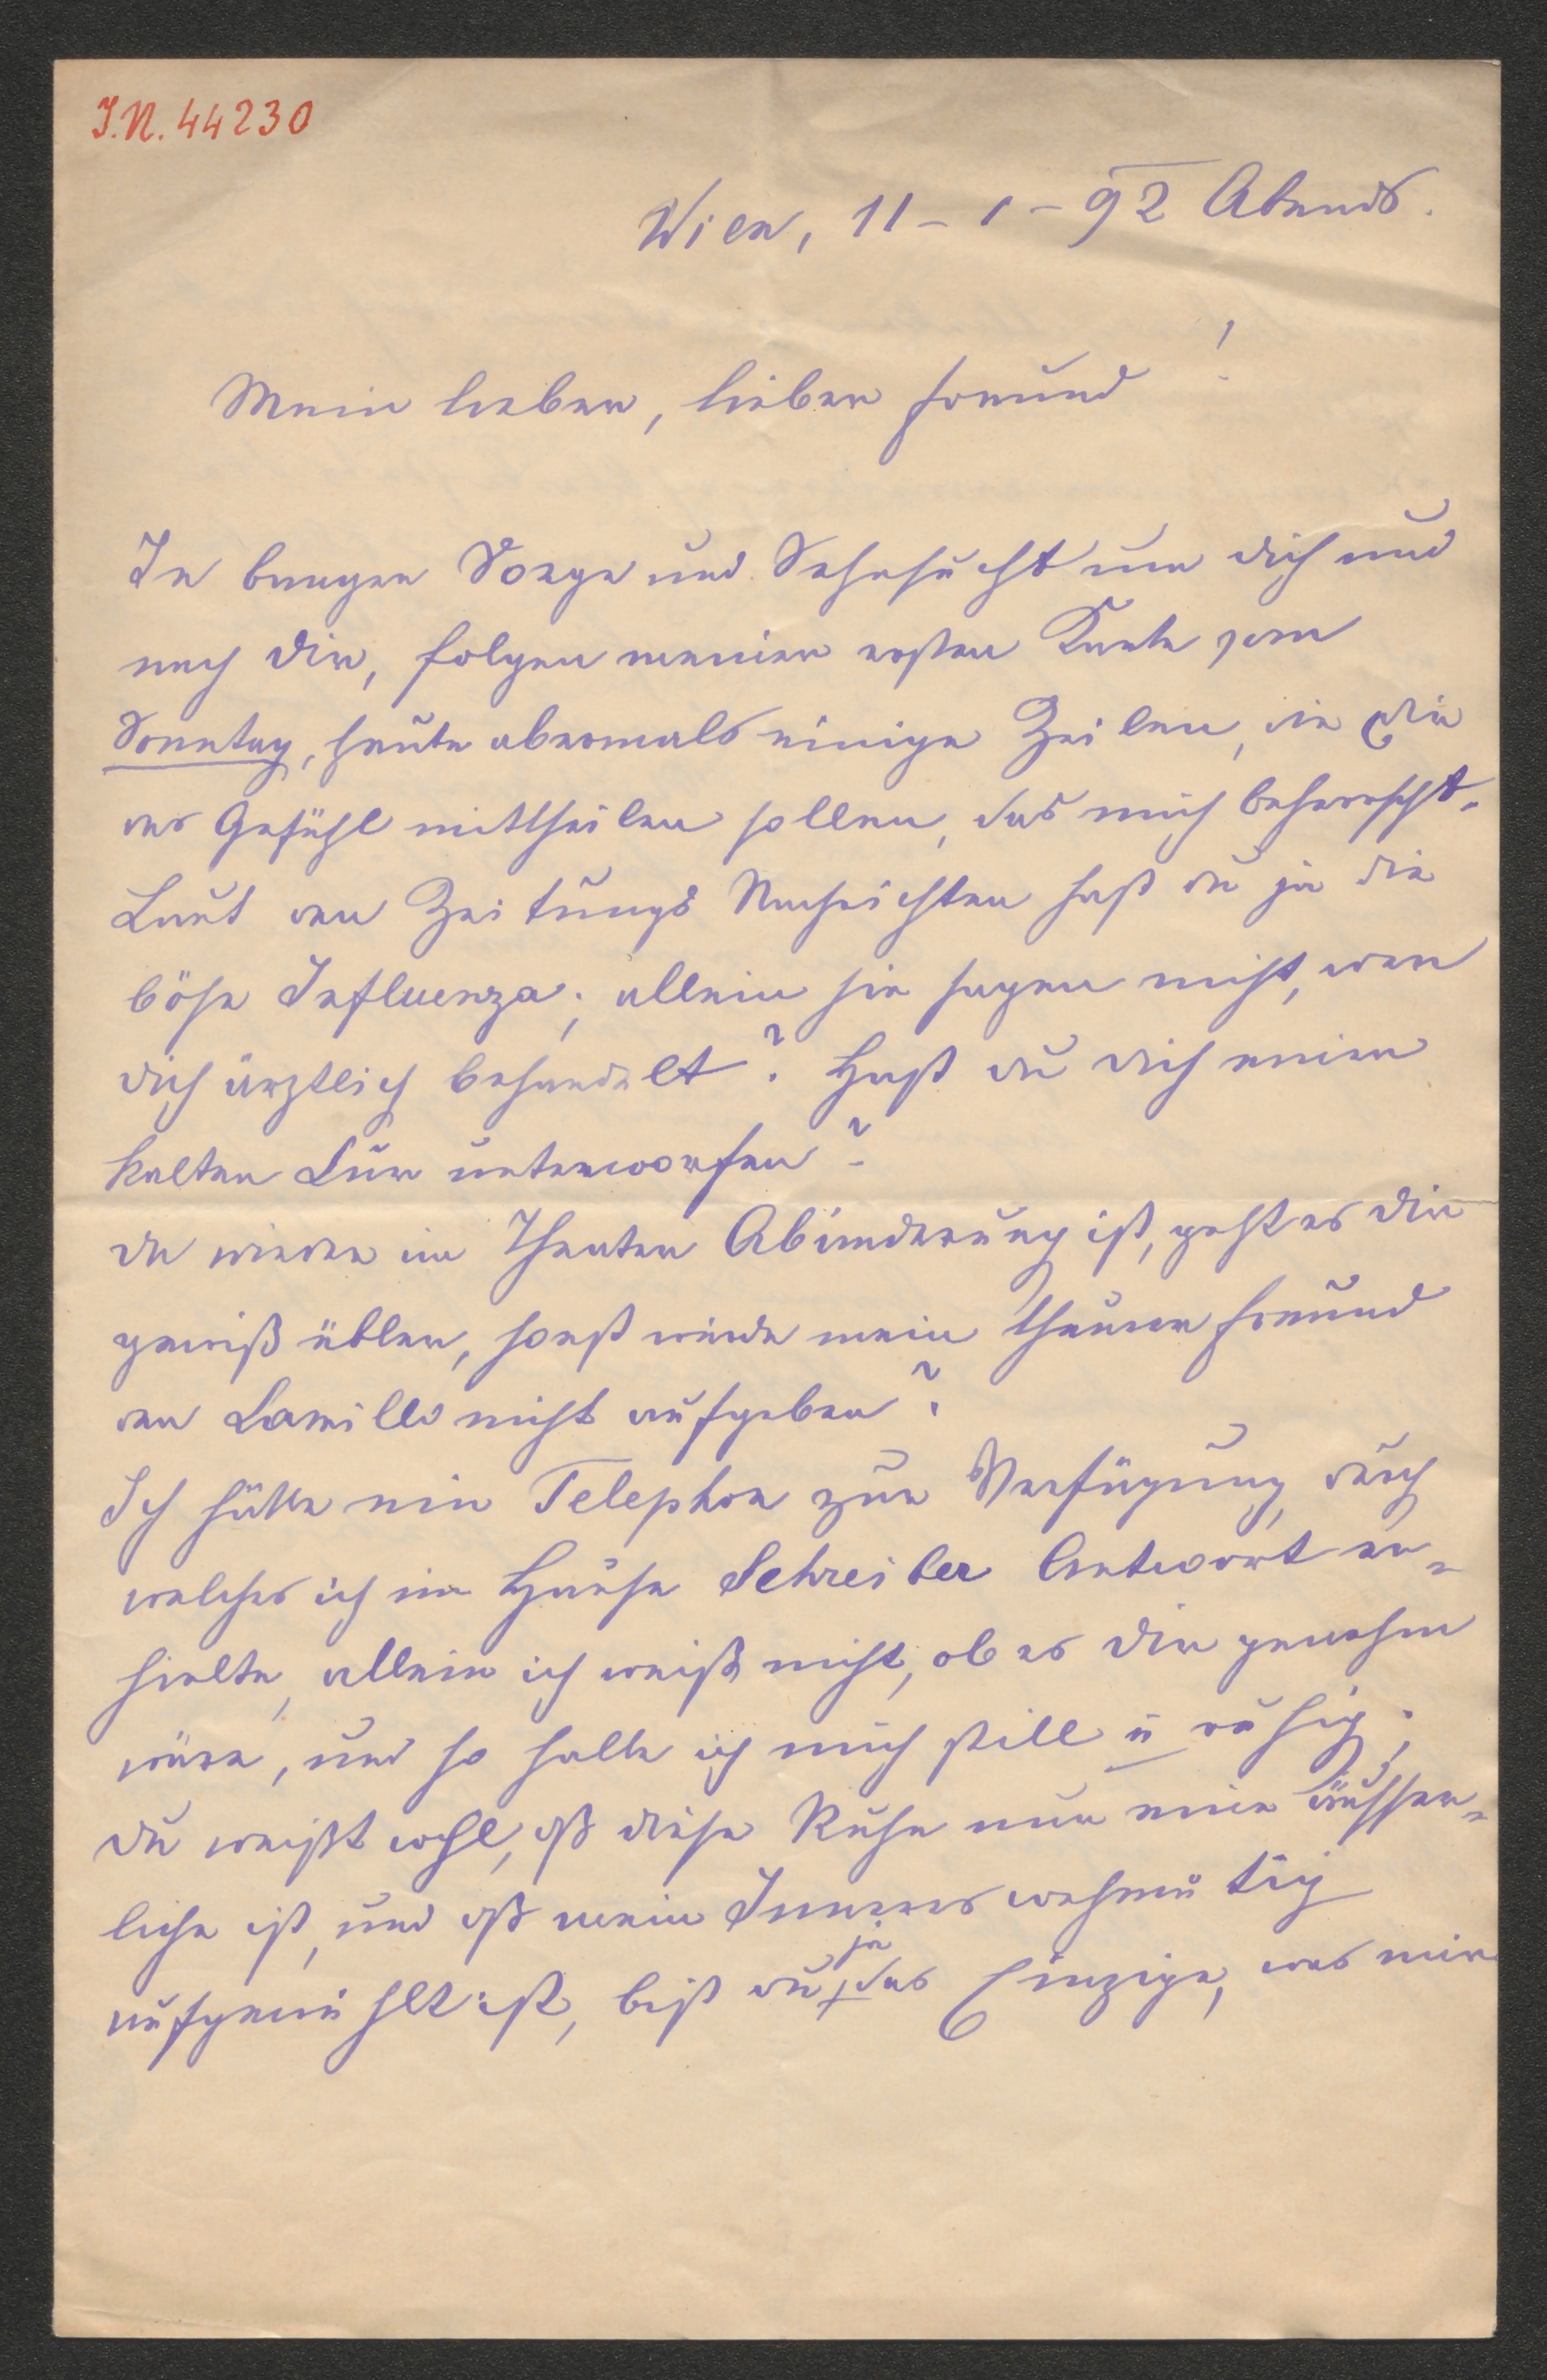 I.N. 44230
Wien, 11 – 1 – 92 Abends.
Mein lieber, lieber Freund!
In banger Sorge und Sehnsucht um dich und
nach dir, folgen meiner ersten Karte vom
Sonntag, heute abermals einige Zeilen, die Dir
das Gefühl mittheilen sollen, das mich beherrscht.
Laut den Zeitungs Nachrichten hast du ja die
böse Influenza; allein sie sagen nicht, wer
dich ärztlich behandelt? Hast du dich einer
kalten Cur unterworfen?
da wieder im Theater Abänderung ist, geht es dir
gewiß übler, sonst würde mein theurer Freund
den Camillo nicht aufgeben?
Ich hätte ein Telephon zur Verfügung, durch
welches ich im Hause Schreiber Antwort er-
hielte, allein ich weiß nicht, ob es dir genehm
wäre, und so halte ich mich still u ruhig;
du weißt wohl, dß diese Ruhe nur eine äusser-
liche ist, und dß mein Inneres wehmütig
aufgewühlt ist, bist du ja das Einzige, was mir